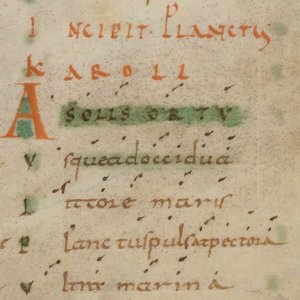 INCIPIT PLANCTUS
KAROLI
A SOLIS ORTV
Vsqueadoccidua
Littore maris
Planctuspulsatpectora
Vltra marina